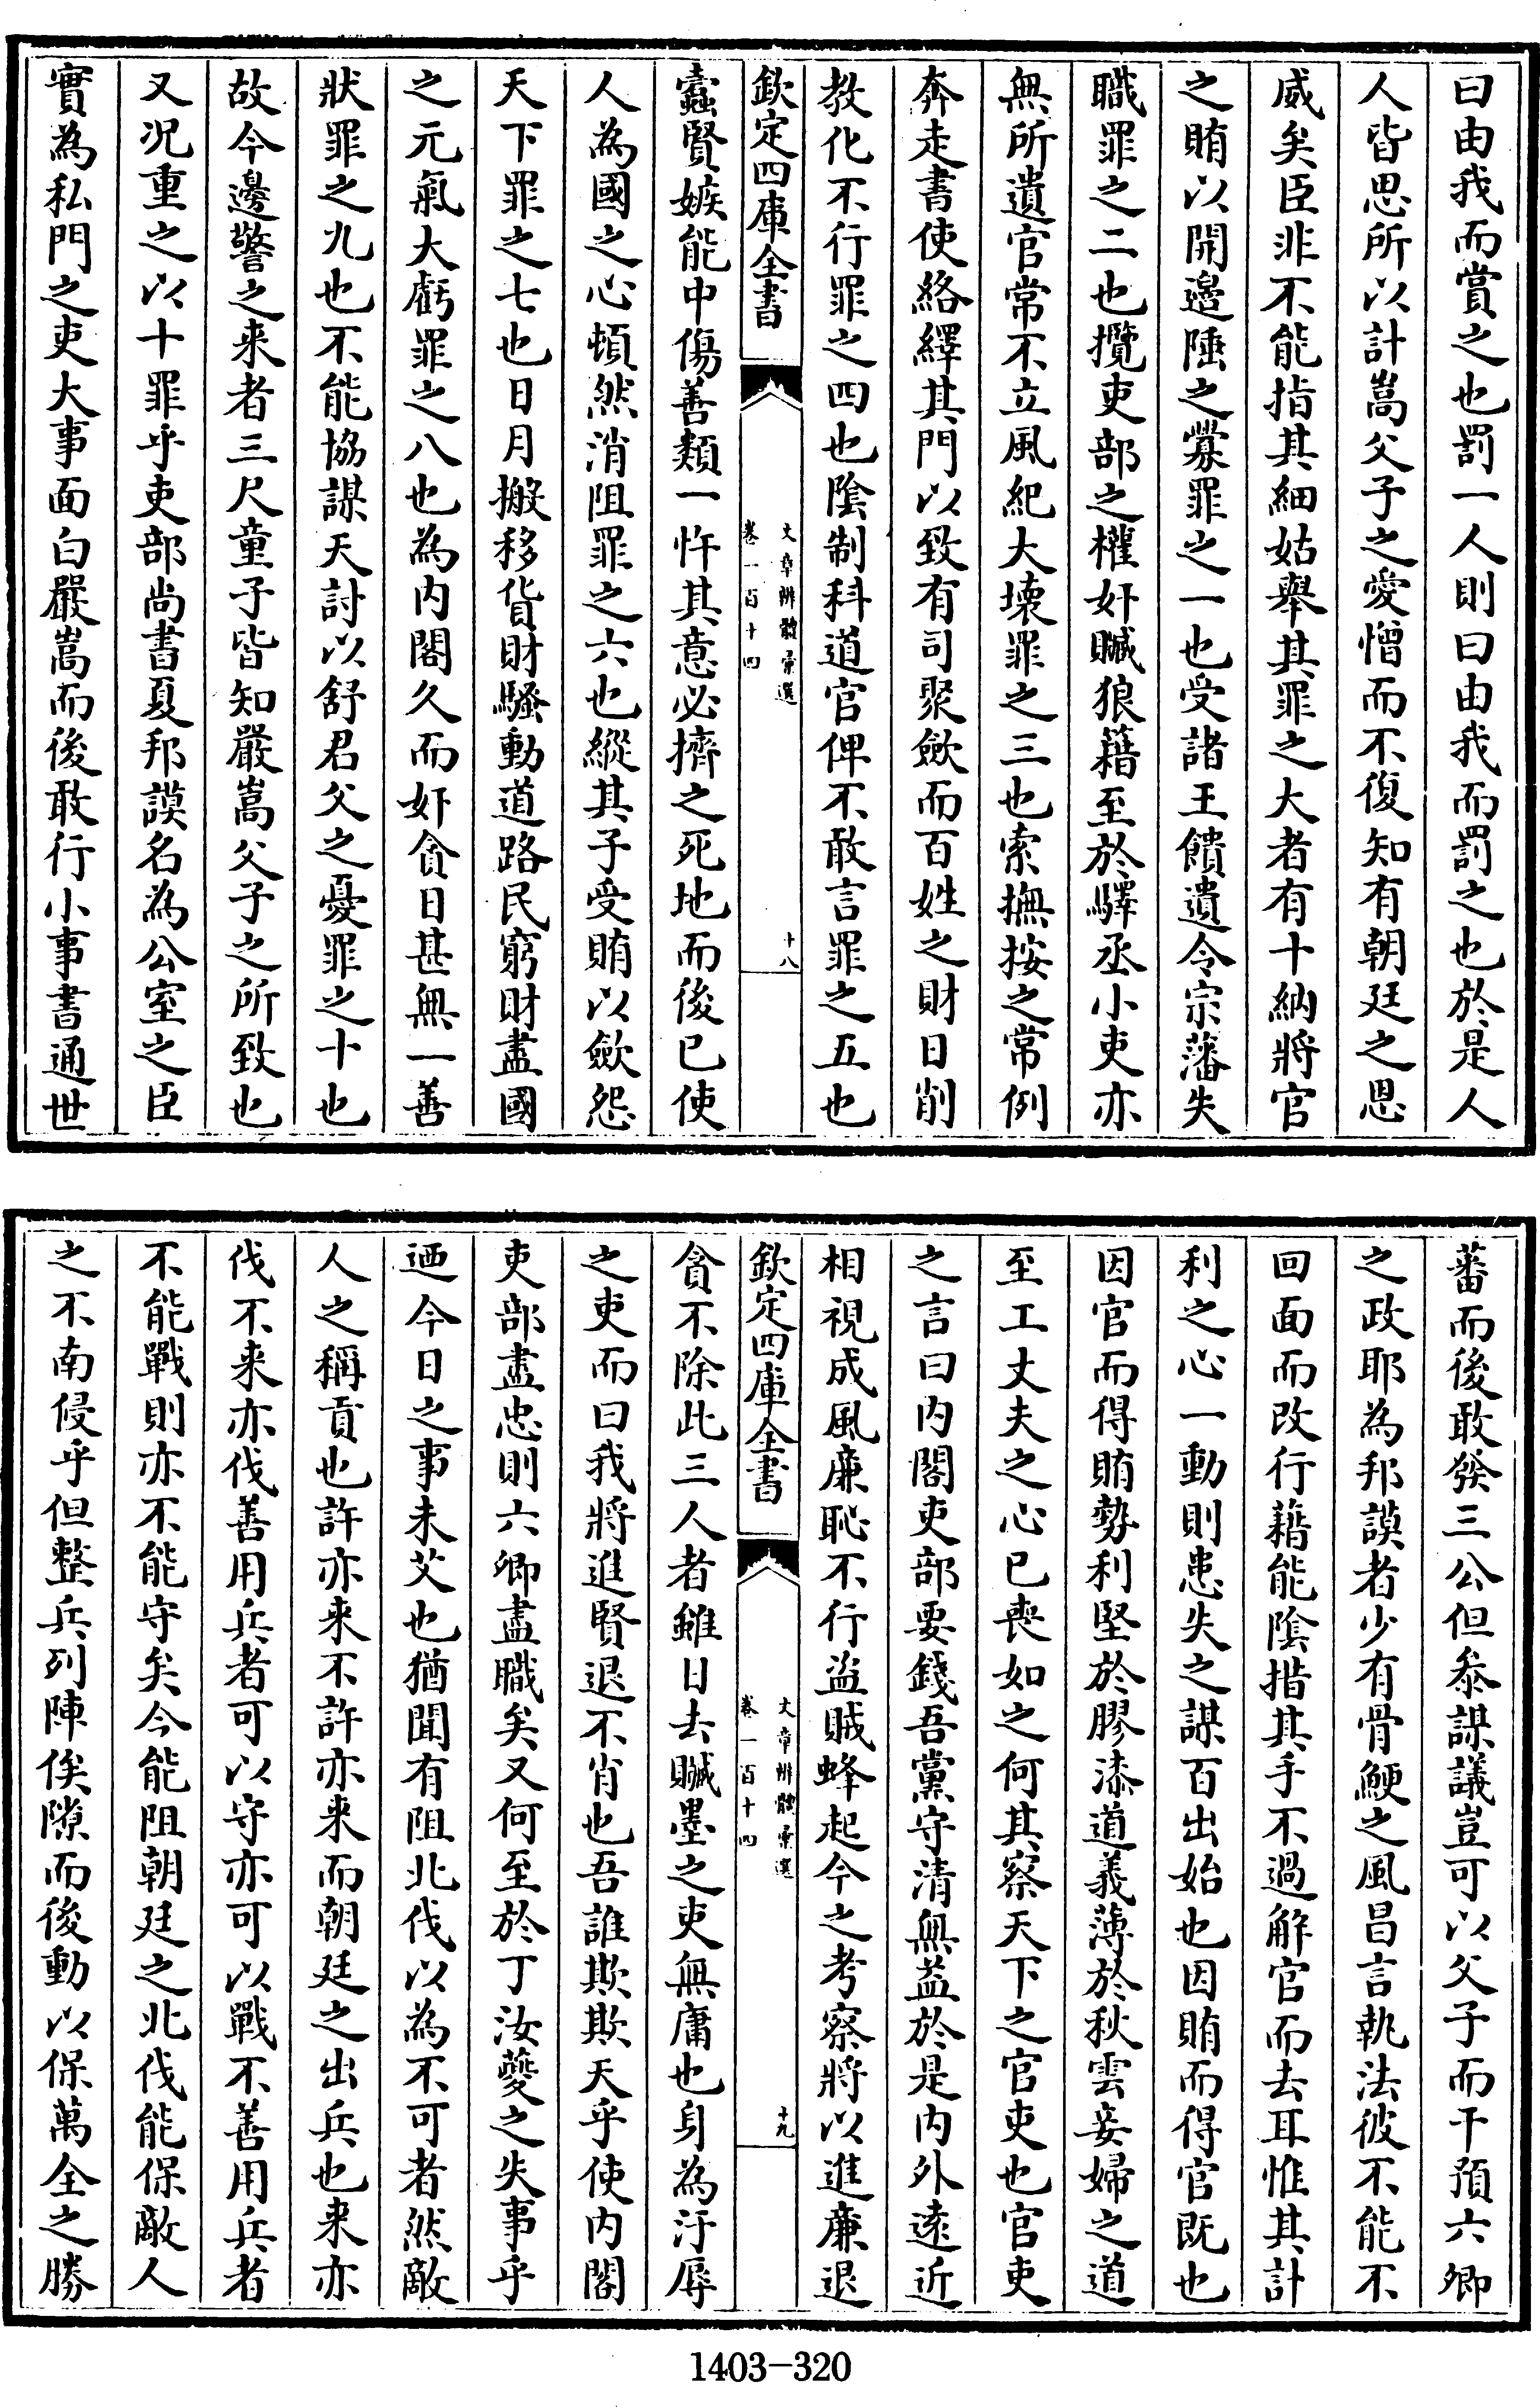 曰由我而賞之也罰一人則曰由我而罰之也於是人
人皆思所以計嵩父子之愛憎而不復知有朝廷之恩
威矣臣非不能指其細姑舉其罪之大者有十納將官
之賄以開邊陲之釁罪之一也受諸王饋遺令宗藩失
職罪之二也攬吏部之權奸贓狼籍至於驛丞小吏亦
無所遺官常不立風紀大壞罪之三也索撫按之常例
奔走書使絡繹其門以致有司聚斂而百姓之財日削
教化不行罪之四也陰制科道官俾不敢言罪之五也
欽定四庫全書
文章辨體彙選
卷一百十四
十八
蠹賢嫉能中傷善類一忤其意必擠之死地而後已使
人為國之心頓然消阻罪之六也縱其子受賄以斂怨
天下罪之七也日月搬移貨財騷動道路民窮財盡國
之元氣大虧罪之八也為內閣久而奸貪日甚無一善
狀罪之九也不能協謀天討以舒君父之憂罪之十也
故今邊警之來者三尺童子皆知嚴嵩父子之所致也
又況重之以十罪乎吏部尚書夏邦謨名為公室之臣
實為私門之吏大事面白嚴嵩而後敢行小事書通世
蕃而後敢發三公但叅謀議豈可以父子而干預六卿
之政耶為邦謨者少有骨鯁之風昌言執法彼不能不
回面而改行藉能陰措其手不過解官而去耳惟其計
利之心一動則患失之謀百出始也因賄而得官既也
因官而得賄勢利堅於膠漆道義薄於秋雲妾婦之道
至工丈夫之心已喪如之何其察天下之官吏也官吏
之言曰內閣吏部要錢吾黨守清無益於是內外遠近
相視成風廉恥不行盜賊蜂起今之考察將以進廉退
欽定四庫全書
文章辨體彙選
卷一百十四
十九
貪不除此三人者雖日去贓墨之吏無庸也身為汙辱
之吏而曰我將進賢退不肖也吾誰欺欺天乎使內閣
吏部盡忠則六卿盡職矣又何至於丁汝夔之失事乎
迺今日之事未艾也猶聞有阻北伐以為不可者然敵
人之稱貢也許亦來不許亦來而朝廷之出兵也來亦
伐不來亦伐善用兵者可以守亦可以戰不善用兵者
不能戰則亦不能守矣今能阻朝廷之北伐能保敵人
之不南侵乎但整兵列陣俟隙而後動以保萬全之勝
1403-320